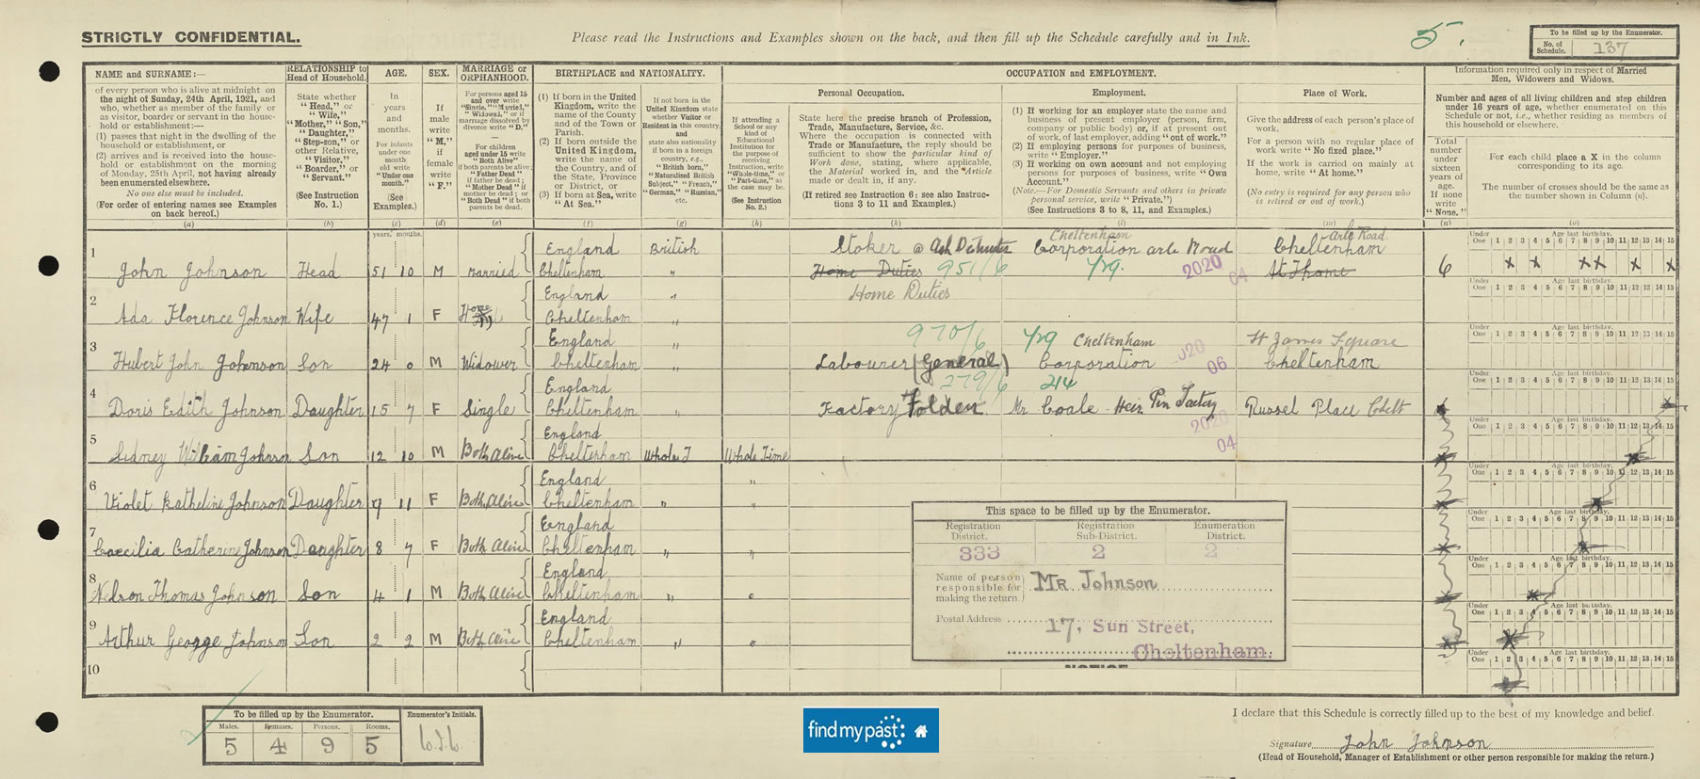 STRICTLY CONFIDENTIAL.
Please read the Instructions and Examples shown on the back, and then fill up the Schedule carefully and in Ink.
5.
To be filled up by the Enumerator.
No. of Schedule. 137
NAME and SURNAME:—
of every person who is alive at midnight on
the night of Sunday, 24th April, 1921, and
who, whether as member of the family or
as visitor, boarder or servant in the house-
hold or establishment:—
(1) passes that night in the dwelling of the
household or establishment, or
(2) arrives and is received into the house-
hold or establishment on the morning
of Monday, 25th April, not having already
been enumerated elsewhere.
No one else must be included.
(For order of entering names see Examples
on back hereof.)
(a)
RELATIONSHIP to
Head of Household.
State whether
"Head," or
"Wife,"
"Mother," "Son,"
"Daughter,"
"Step-son," or
other Relative,
"Visitor,"
"Boarder," or
"Servant."
(See Instruction
No. 1.)
(b)
AGE.
In
years
and
months.
For infants
under one
month
old write
"Under one
month."
(See
Examples.)
(c)
years. months.
SEX.
If
male
write
"M,"
if
female
write
"F."
(d)
MARRIAGE or
ORPHANHOOD.
For persons aged 15
and over write
"Single," "Married,"
"Widowed," or if
marriage dissolved by
divorce write "D."
For children
aged under 15 write
"Both Alive"
if both parents be alive,
"Father Dead"
if father be dead;
"Mother Dead" if
mother be dead; or
"Both Dead" if both
parents be dead.
(e)
BIRTHPLACE and NATIONALITY.
(1) If born in the United
Kingdom, write the
name of the County
and of the Town or
Parish.
(2) If born outside the
United Kingdom,
write the name of
the Country, and of
the State, Province
or District, or
(3) If born at Sea, write
"At Sea."
(f)
If not born in the
United Kingdom state
whether Visitor or
Resident in this country,
and
state also nationality
(g)
If attending a
School or any
kind of
Educational
Institution for
the purpose of
receiving
Instruction, write
"Whole-time," or
"Part-time," as
the case may be.
(See Instruction
No. 2.)
(h)
OCCUPATION and EMPLOYMENT.
Personal Occupation.
State here the precise branch of Profession,
Trade, Manufacture, Service, &c.
Where the occupation is connected with
Trade or Manufacture, the reply should
be sufficient to show the particular kind of
Work done, stating, where applicable,
the Material worked in, and the Article
made or dealt in, if any.
(If retired see Instruction 6: see also Instruc-
tions 3 to 11 and Examples.)
(k)
Employment.
(1) If working for an employer state the name and
business of present employer (person, firm,
company or public body) or, if at present out
of work, of last employer, adding "out of work."
(2) If employing persons for purposes of business,
write "Employer."
(3) If working on own account and not employing
persons for purposes of business, write "Own
Account."
(Note.—For Domestic Servants and others in private
personal service, write "Private.")
(See Instructions 3 to 8, 11, and Examples.)
(l)
Place of Work.
Give the address of each person's place of
work.
For a person with no regular place of
work write "No fixed place."
If the work is carried on mainly at
home, write "At home."
(No entry is required for any person who
is retired or out of work.)
(m)
Information required only in respect of Married
Men, Widowers and Widows.
Number and ages of all living children and step children
under 16 years of age, whether enumerated on this
Schedule or not, i.e., whether residing as members of
this household or elsewhere.
Total
number
under
sixteen
years of
age.
If none
write
"None."
(n)
For each child place a X in the column
corresponding to its age.
The number of crosses should be the same as
the number shown in Column (n).
(o)
1 John Johnson Head 51 10 M Married England Cheltenham British Stoker @ Ash Destructor Home Duties 951/6 Cheltenham Corporation Arle Road 2020 04 Arle Road Cheltenham At Home 6
2 Ada Florence Johnson Wife 47 1 F England Cheltenham " Home Duties
3 Hubert John Johnson Son 24 0 M Widower England Cheltenham " Labourer (General) 970/6 Cheltenham Corporation 06 St James Square Cheltenham
4 Doris Edith Johnson Daughter 15 7 F Single England Cheltenham " Factory Folder 279/6 214 Mr Coale Hair Pin Factory 2020 04 Russel Place Chelt
5 Sidney William Johnson Son 12 10 M Both Alive England Cheltenham Whole T Whole Time
6 Violet Katheline Johnson Daughter 9 11 F Both Alive England Cheltenham " "
7 Caecilia Catherine Johnson Daughter 8 7 F Both Alive England Cheltenham " "
8 Nelson Thomas Johnson Son 4 1 M Both Alive England Cheltenham " "
9 Arthur George Johnson Son 2 2 M Both Alive England Cheltenham " "
10
This space to be filled up by the Enumerator.
Registration District. Registration Sub-District. Enumeration District.
333 2 2
Name of person responsible for making the return. Mr Johnson
Postal Address 17, Sun Street,
Cheltenham.
NOTICE
To be filled up by the Enumerator.
Males. Females. Persons. Rooms.
5 4 9 5
Enumerator's Initials.
findmypast
I declare that this Schedule is correctly filled up to the best of my knowledge and belief.
Signature John Johnson
(Head of Household, Manager of Establishment or other person responsible for making the return.)